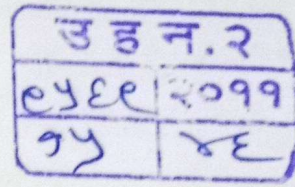 उ ह न. २
९५६९ २०११
१५ ४६